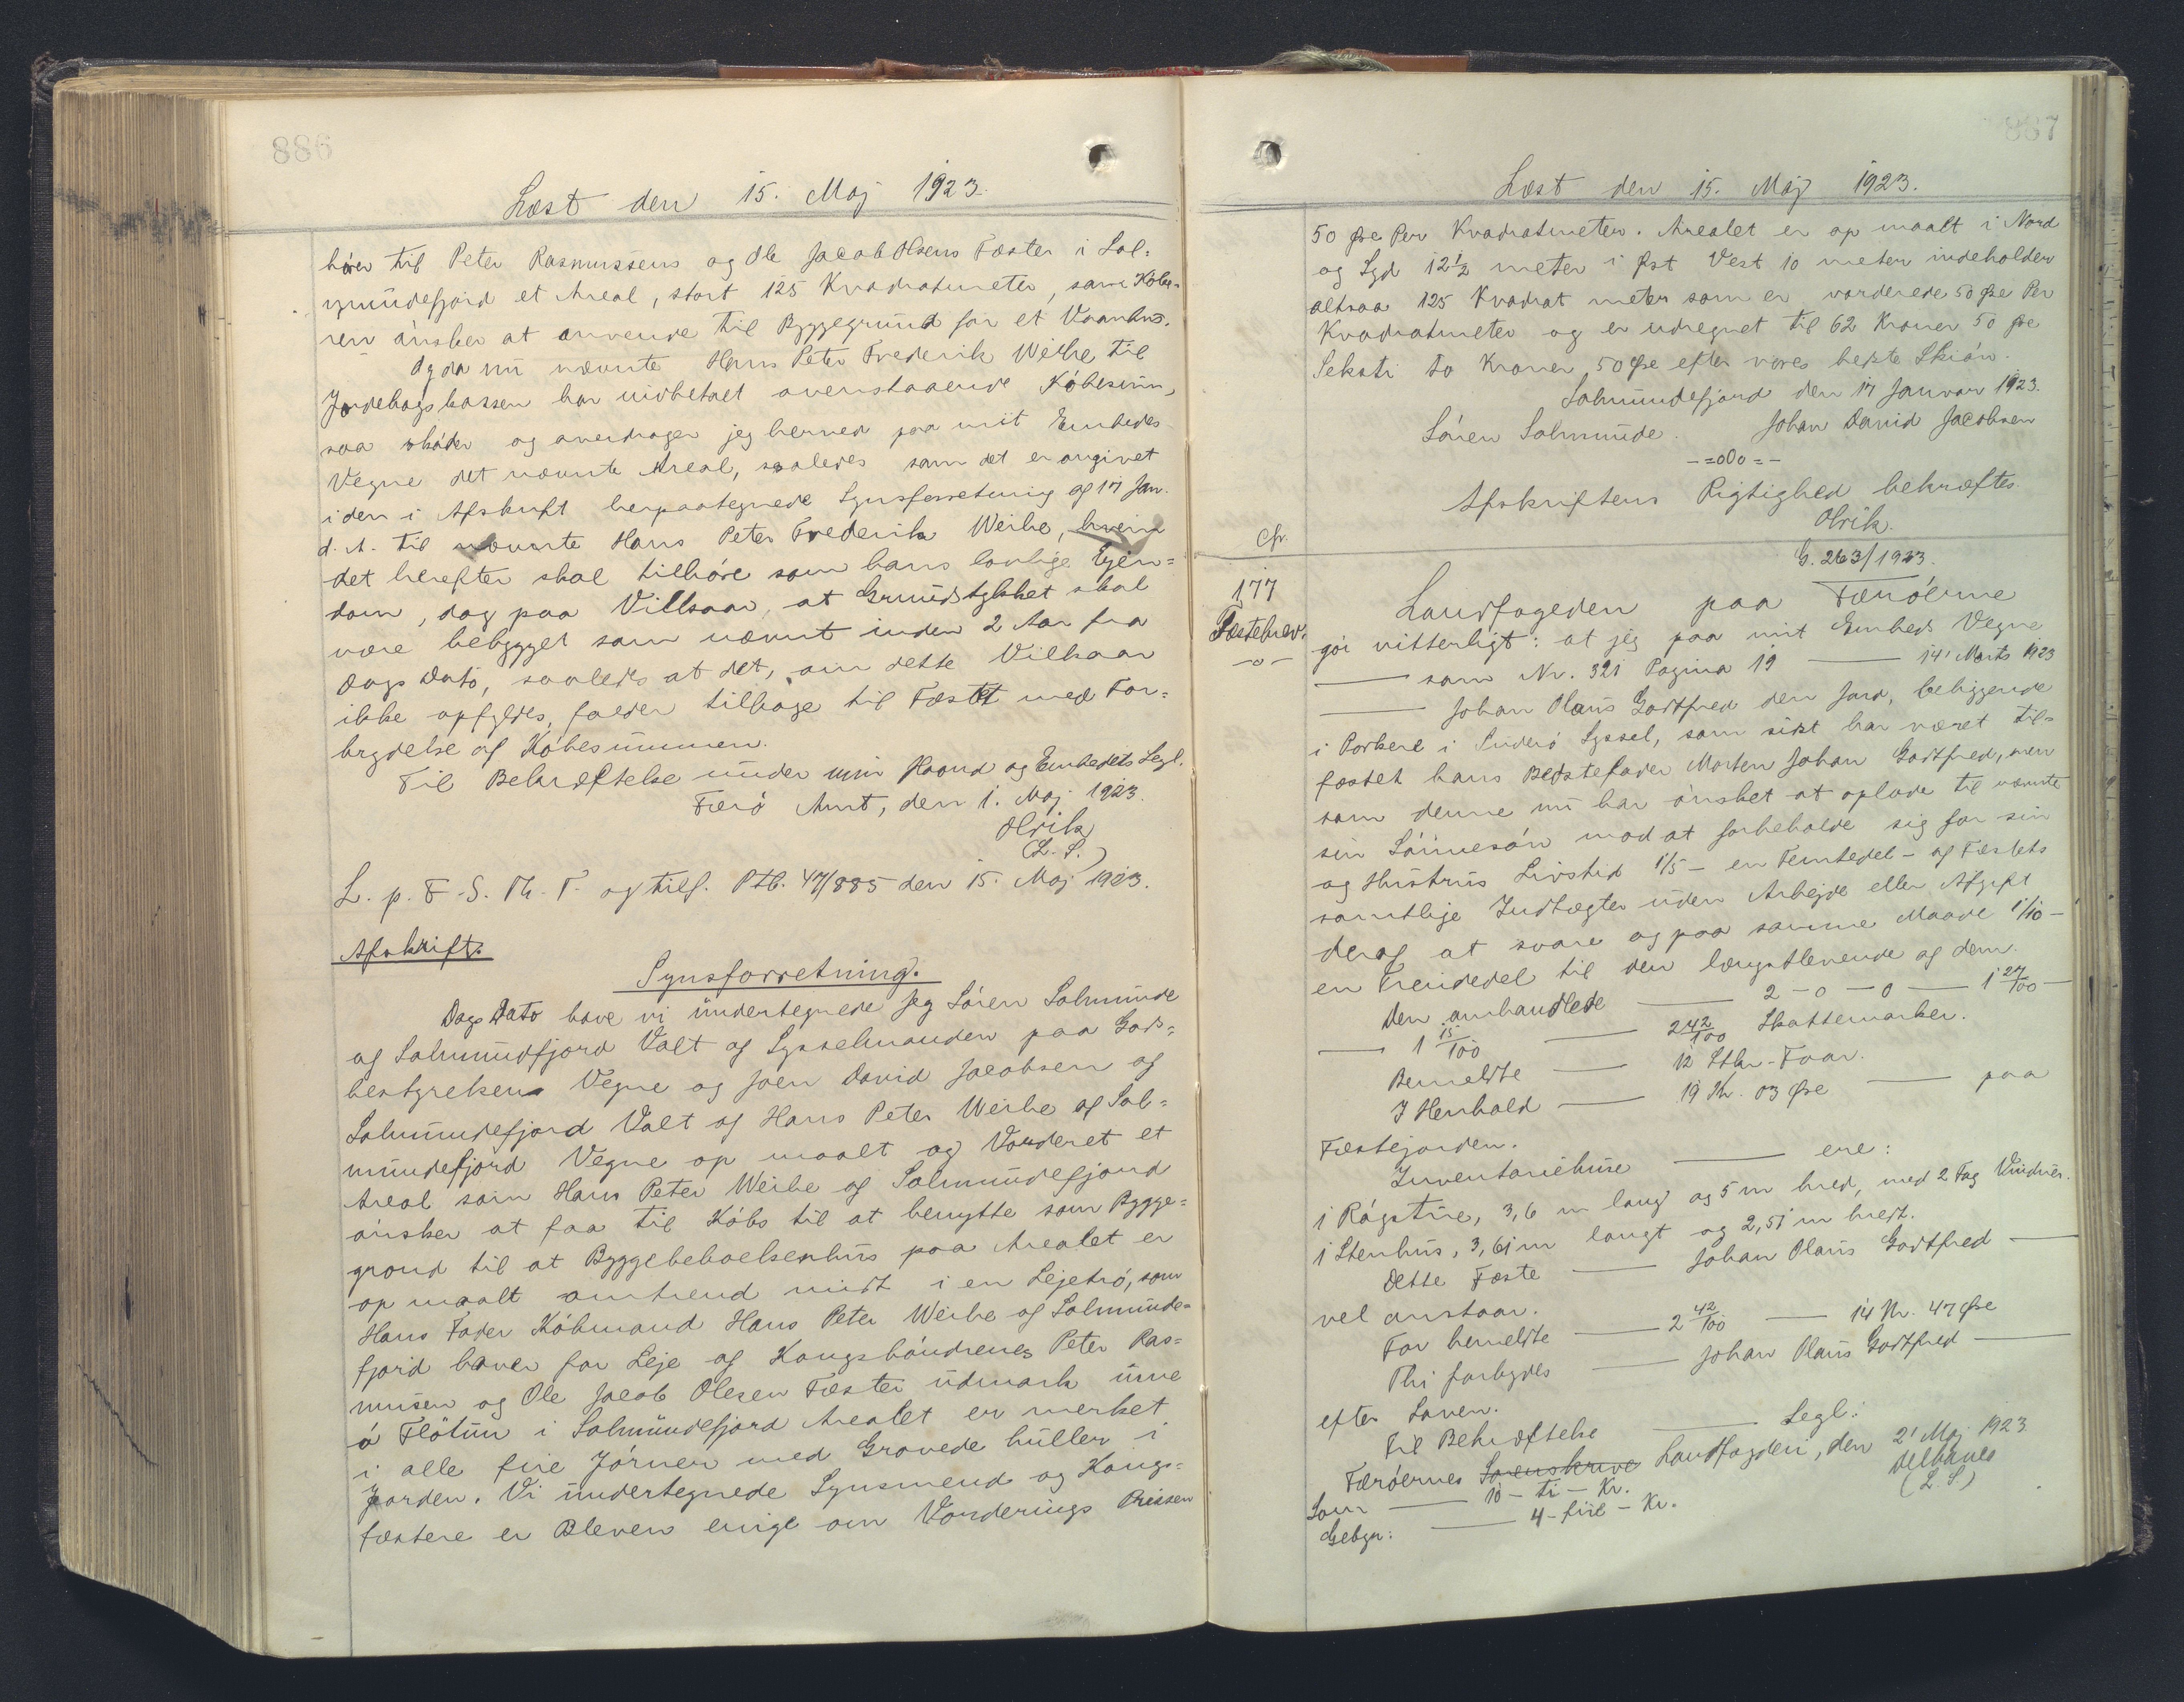 886
Læst den 15. Maj 1923.
hører til Peter Rasmussens og Ole Jacob Olsens Fæster i Sol-
mundefjord et Areal, stort 125 Kvadratmeter, som Købe-
ren ønsker at anvende til Byggegrund for et Vaanhus.
Og da nu nævnte Hans Peter Frederik Weihe til
Jordebogskassen har indbetalt ovenstaaende Købesum,
saa skøder og overdrager jeg herved paa mit Embedes
Vegne det nævnte Areal, saaledes som det er angivet
i den i Afskrift herpaategnede Synsforretning af 17 Jan.
d. A. til nævnte Hans Peter Frederik Weihe, hvem
det herefter skal tilhøre som hans lovlige Ejen-
dom, dog paa Vilkaar, at Grundstykket skal
være bebygget som nævnt inden 2 Aar fra
Dags Dato, saaledes at det, om dette Vilkaar
ikke opfyldes, falder tilbage til Fæstet med For-
brydelse af Købesummen.
Til Bekræftelse under min Haand og Embedets Segl.
Færø Amt, den 1. Maj 1923.
Olrik
(L. S.)
L. p. F. S. Th. T. og tilf. Ptb. 47/885 den 15. Maj 1923.
Afskrift.
Synsforretning.
Dags Dato have vi undertegnede Jeg Sören Solmunde
af Solmundfjord Valt af Sysselmanden paa Gods-
bestyrelsens Vegne og Joen David Jacobsen af
Solmundefjord Valt af Hans Peter Weihe af Sol-
mundefjord Vegne op maalt og Vorderet et
Areal som Hans Peter Weihe af Solmundefjord
ønsker at faa til Købs til at benytte som Bygge-
grond til at Byggebeboelseshus paa Arealet er
op maalt omtrend midt i en Lejetrø, som
Hans Fader Købmand Hans Peter Weihe af Solmunde-
fjord haver for Leje af Kongsbøndrenes Peter Ras-
musen og Ole Jacob Olesen Fæster udmark inne
á Fløtum i Solmundefjord Arealet er merket
i alle fire Jørner med Gravede huller i
Jorden. Vi undertegnede Synsmend og Kongs-
fæstere er Bleven enige om Vorderings Prissen
887
Læst den 15. Maj 1923.
50 Øre Per Kvadratmeter. Arealet er op maalt i Nord
og Syd 12½ meter i Øst Vest 10 meter indeholder
altsaa 125 Kvadrat meter som er vorderede 50 Øre Per
Kvadratmeter og er udregnet til 62 Kroner 50 Øre
Seksti to Kroner 50 Øre efter vores bedste Skiøn.
Solmundefjord den 17 Januar 1923.
Sören Solmunde. Johan David Jacobsen
-=oOo=-
Afskriftens Rigtighed bekræftes.
Olrik.
Cfr.
G. 263/1923.
177
Fæstebrev.
-o-
Landfogeden paa Færøerne
gør vitterligt: at jeg paa mit Embeds Vegne
— som Nr. 321 Pagina 19 — 14' Marts 1923
— Johan Olaus Godtfred den Jord, beliggende
i Porkere i Suderø Syssel, som sidst har været til-
fæstet hans Bedstefader Morten Johan Godtfred, men
som denne nu har ønsket at oplade til nævnte
sin Sønnesøn mod at forbeholde sig for sin
og Hustrus Livstid 1/5 - en Femtedel - af Fæstets
samtlige Indtægter uden Arbejde eller Afgift
deraf at svare og paa samme Maade 1/10 -
en Tiendedel til den længstlevende af dem.
Den omhandlede — 2 - 0 - 0 — 1 27/100 —
— 1 15/100 — 2 42/100 Skattemarker.
Bemeldte — 12 Stkr-Faar.
I Henhold — 19 Kr. 03 Øre — paa
Fæstejorden.
Inventariehuse — ere:
1 Røgstue, 3,6 m lang og 5 m bred, med 2 Fag Vinduer.
1 Stenhus, 3,61 m langt og 2,51 m bredt.
Dette Fæste — Johan Olaus Godtfred —
vel anstaar.
For bemeldte — 2 42/100 — 14 Kr. 47 Øre
Thi forbydes — Johan Olaus Godtfred —
efter Loven.
Til Bekræftelse — Segl:
Færøernes Sorenskrive Landfogderi, den 2' Maj 1923
Som — 10 - ti - Kr.
(L. S)
Gebyr: — 4 - fire - Kr.